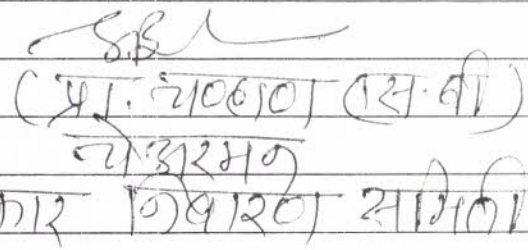 (प्रा. चव्हाण एस.बी)
चेअरमन
कार निवारण समिती